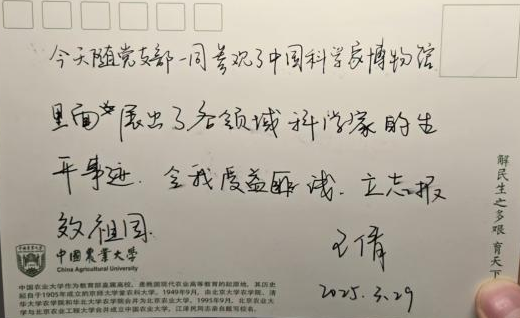 今天随党支部一同参观了中国科学家博物馆
里面展出了各领域科学家的生
平事迹.令我受益匪浅.立志报
效祖国.
王倩
2025.3.29
解民生之多艰 育天下
中国农业大学
China Agricultural University
中国农业大学作为教育部直属高校，是我国现代农业高等教育的起源地，其历史
起自于1905年成立的京师大学堂农科大学。1949年9月，由北京大学农学院、清
华大学农学院和华北大学农学院合并为北京农业大学。1995年9月，北京农业大
学与北京农业工程大学合并成立中国农业大学，江泽民同志亲自题写校名。